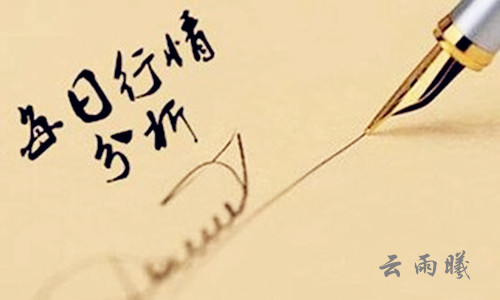 每日行情
分析
云雨曦